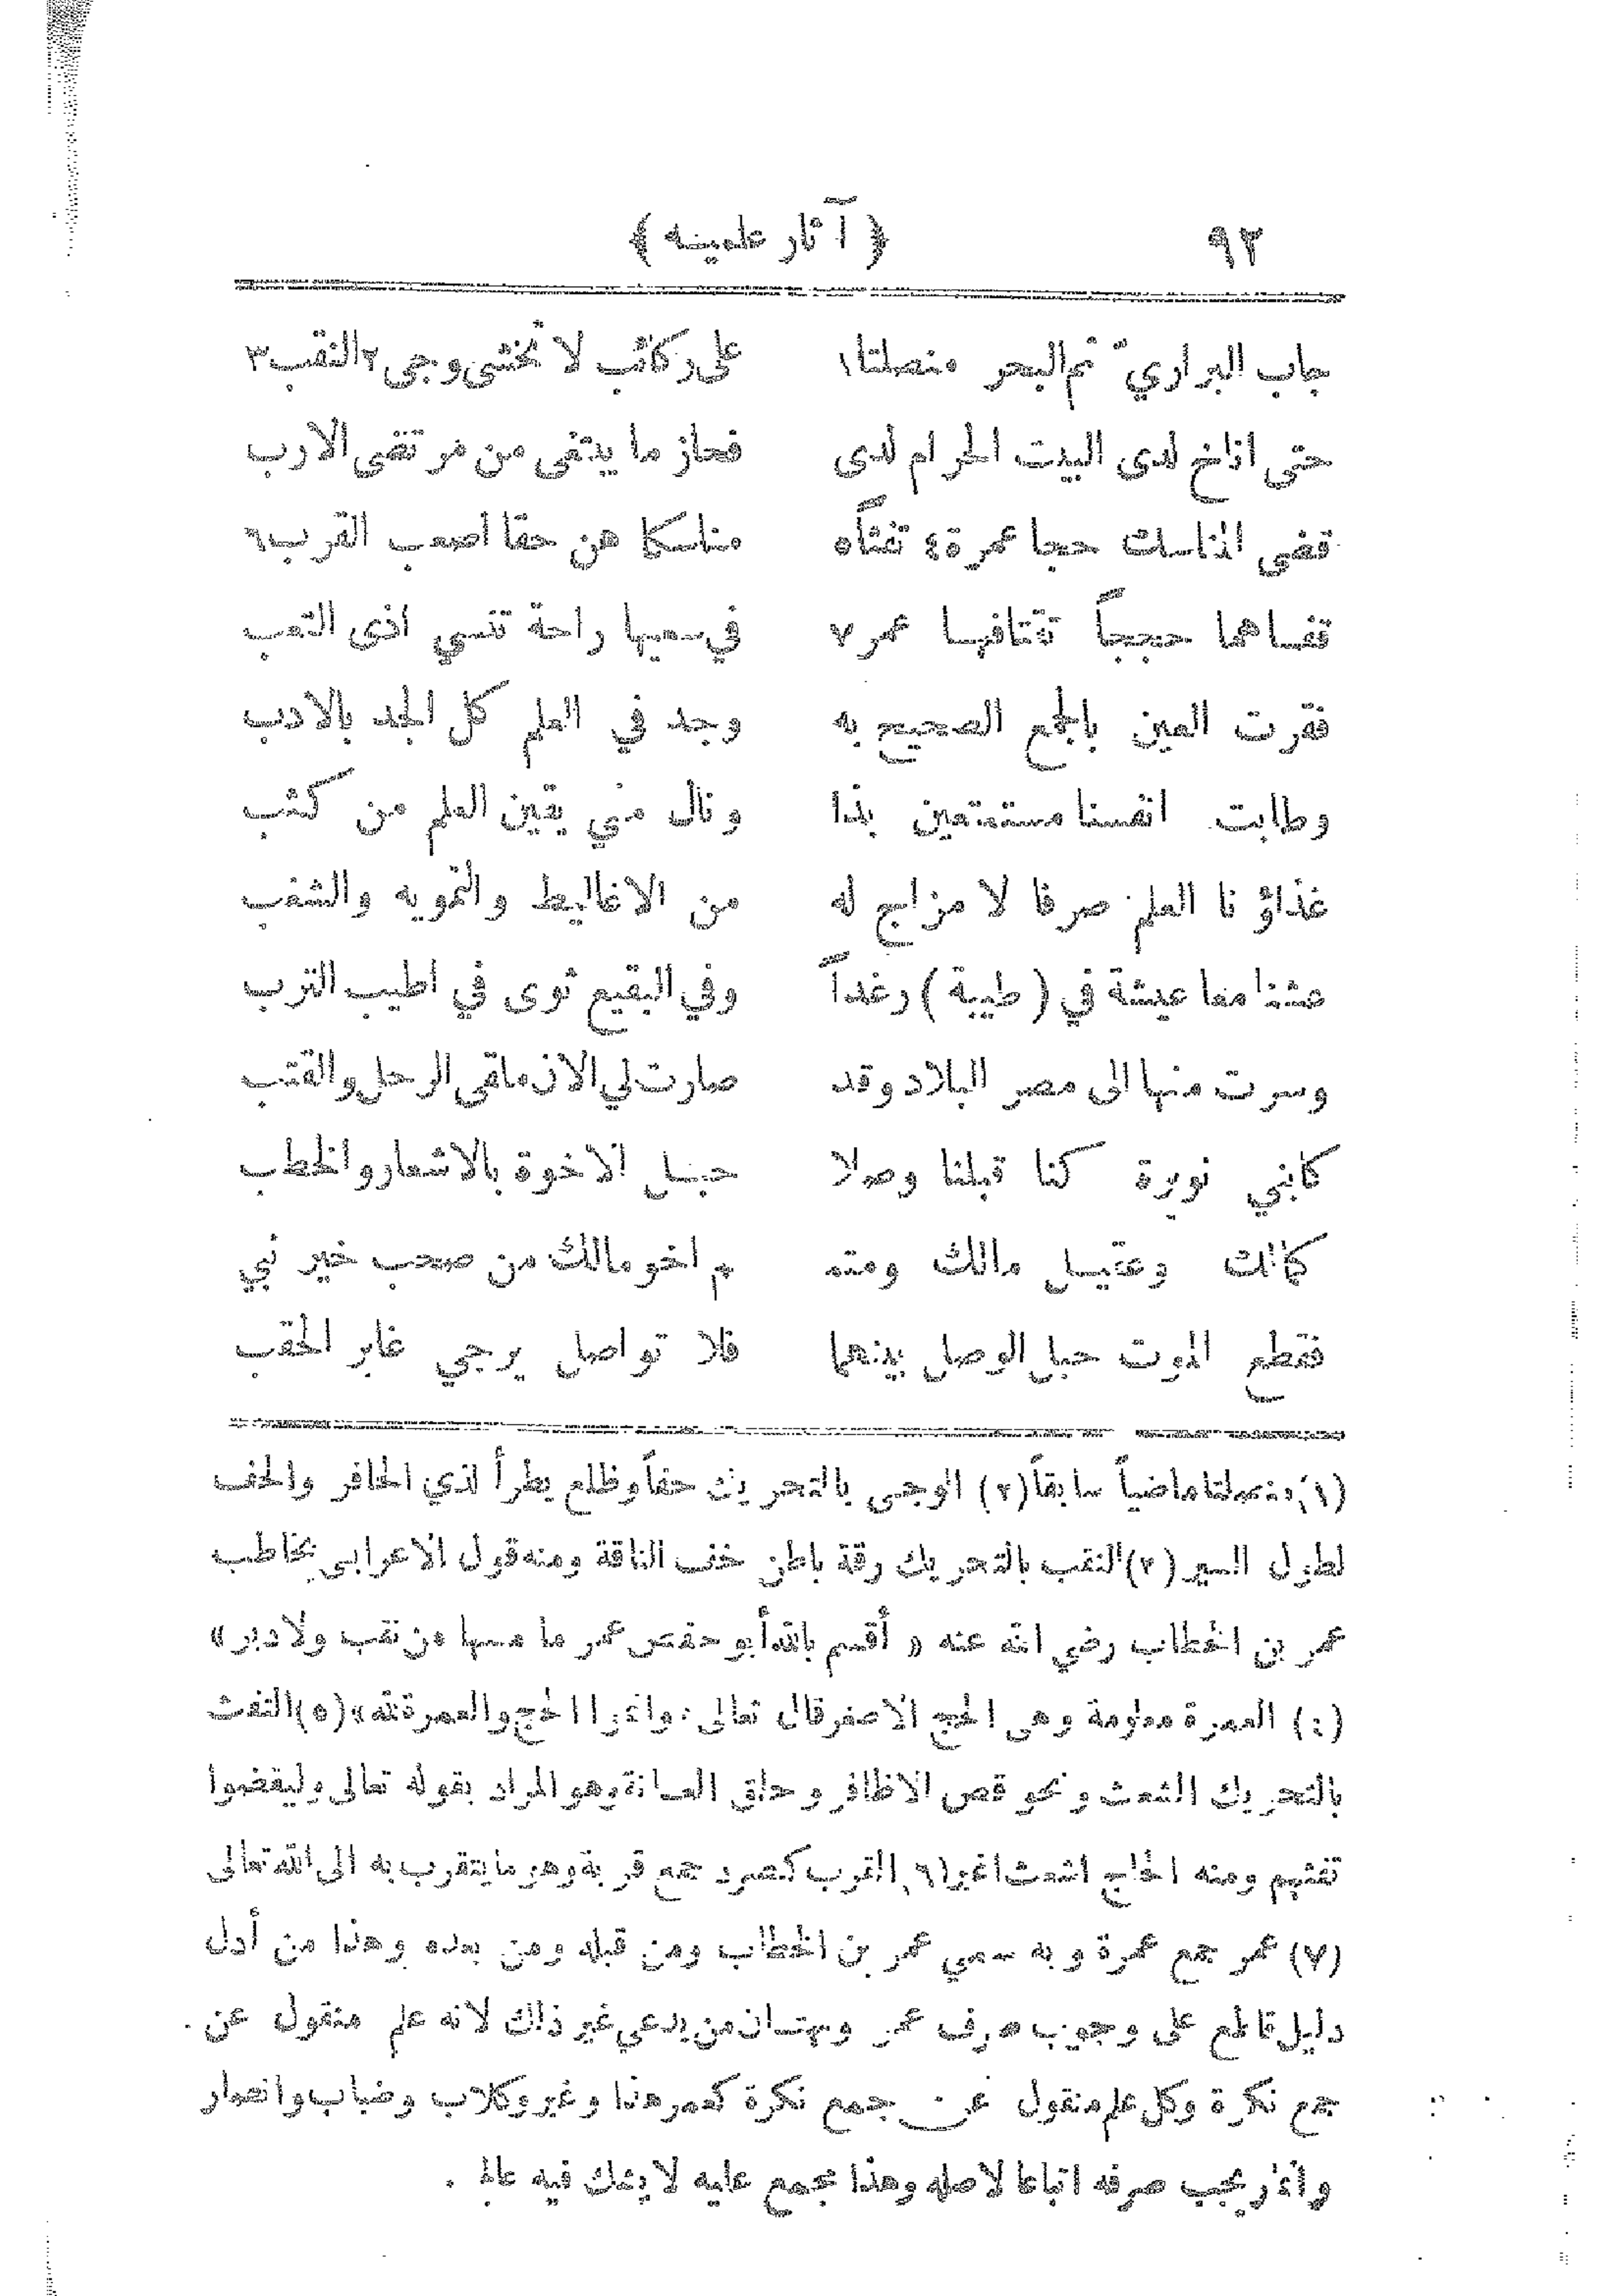 ٩٢ ﴿ آثار علمية ﴾
جاب البراريّ ثم البحر منصلتا١ على ركائب لا تُخشى وجى٢ النقب٣
حتى اناخ لدى البيت الحرام لدى فحاز ما يبتغى من مرتقى الارب
قضى المناسك حجا عمرة٤ تفثاً٥ مناسكا هن حقا اصعب القرب٦
قفاها حججاً تقتافها عمر٧ في سعيها راحة تنسي اذى التعب
فقرت العين بالجمع الصحيح به وجد في العلم كل الجد بالادب
وطابت انفسنا مستمتعين بذا ونال مني يقين العلم من كثب
غذاؤنا العلم صرفا لا مزاج له من الاغاليط والتمويه والشغب
عشنا معا عيشة في ( طيبة ) رغداً وفي البقيع ثوى في اطيب الترب
وسرت منها الى مصر البلاد وقد صارت لي الآن ملقى الرحل والقتب
كابني نويرة كنا قبلنا وصلا حبل الاخوة بالاشعار والخطب
كمالك وعقيل مالك ومتم م اخو مالك من صحب خير نبي
فقطع الموت حبل الوصل بينهما فلا تواصل يرجي غابر الحقب
(١) منصلتا ماضياً سابقاً (٢) الوجى بالتحريك حفاً وظلع يطرأ لذي الحافر والخف
لطول السير (٣) النقب بالتحريك رقة باطن خف الناقة ومنه قول الاعرابي يخاطب
عمر بن الخطاب رضي الله عنه « أقسم بالله أبو حفص عمر ما مسها من نقب ولا دبر »
(٤) العمرة معلومة وهي الحج الاصغر قال تعالى « واتموا الحج والعمرة لله » (٥) التفث
بالتحريك الشعث ونحو قص الاظافر وحلق العانة وهو المراد بقوله تعالى وليقضوا
تفثهم ومنه الحاج اشعث اغبر (٦) القرب كصرد جمع قربة وهو ما يتقرب به الى الله تعالى
(٧) عمر جمع عمرة وبه سمي عمر بن الخطاب ومن قبله ومن بعده وهذا من أدل
دليل قاطع على وجوب صرف عمر وبهتان من يدعي غير ذلك لانه علم منقول عن
جمع نكرة وكل علم منقول عن جمع نكرة كعمر هذا وغير وكلاب وضباب وانصار
وانمار يجب صرفه اتباعا لاصله وهذا مجمع عليه لا يشك فيه عالم .